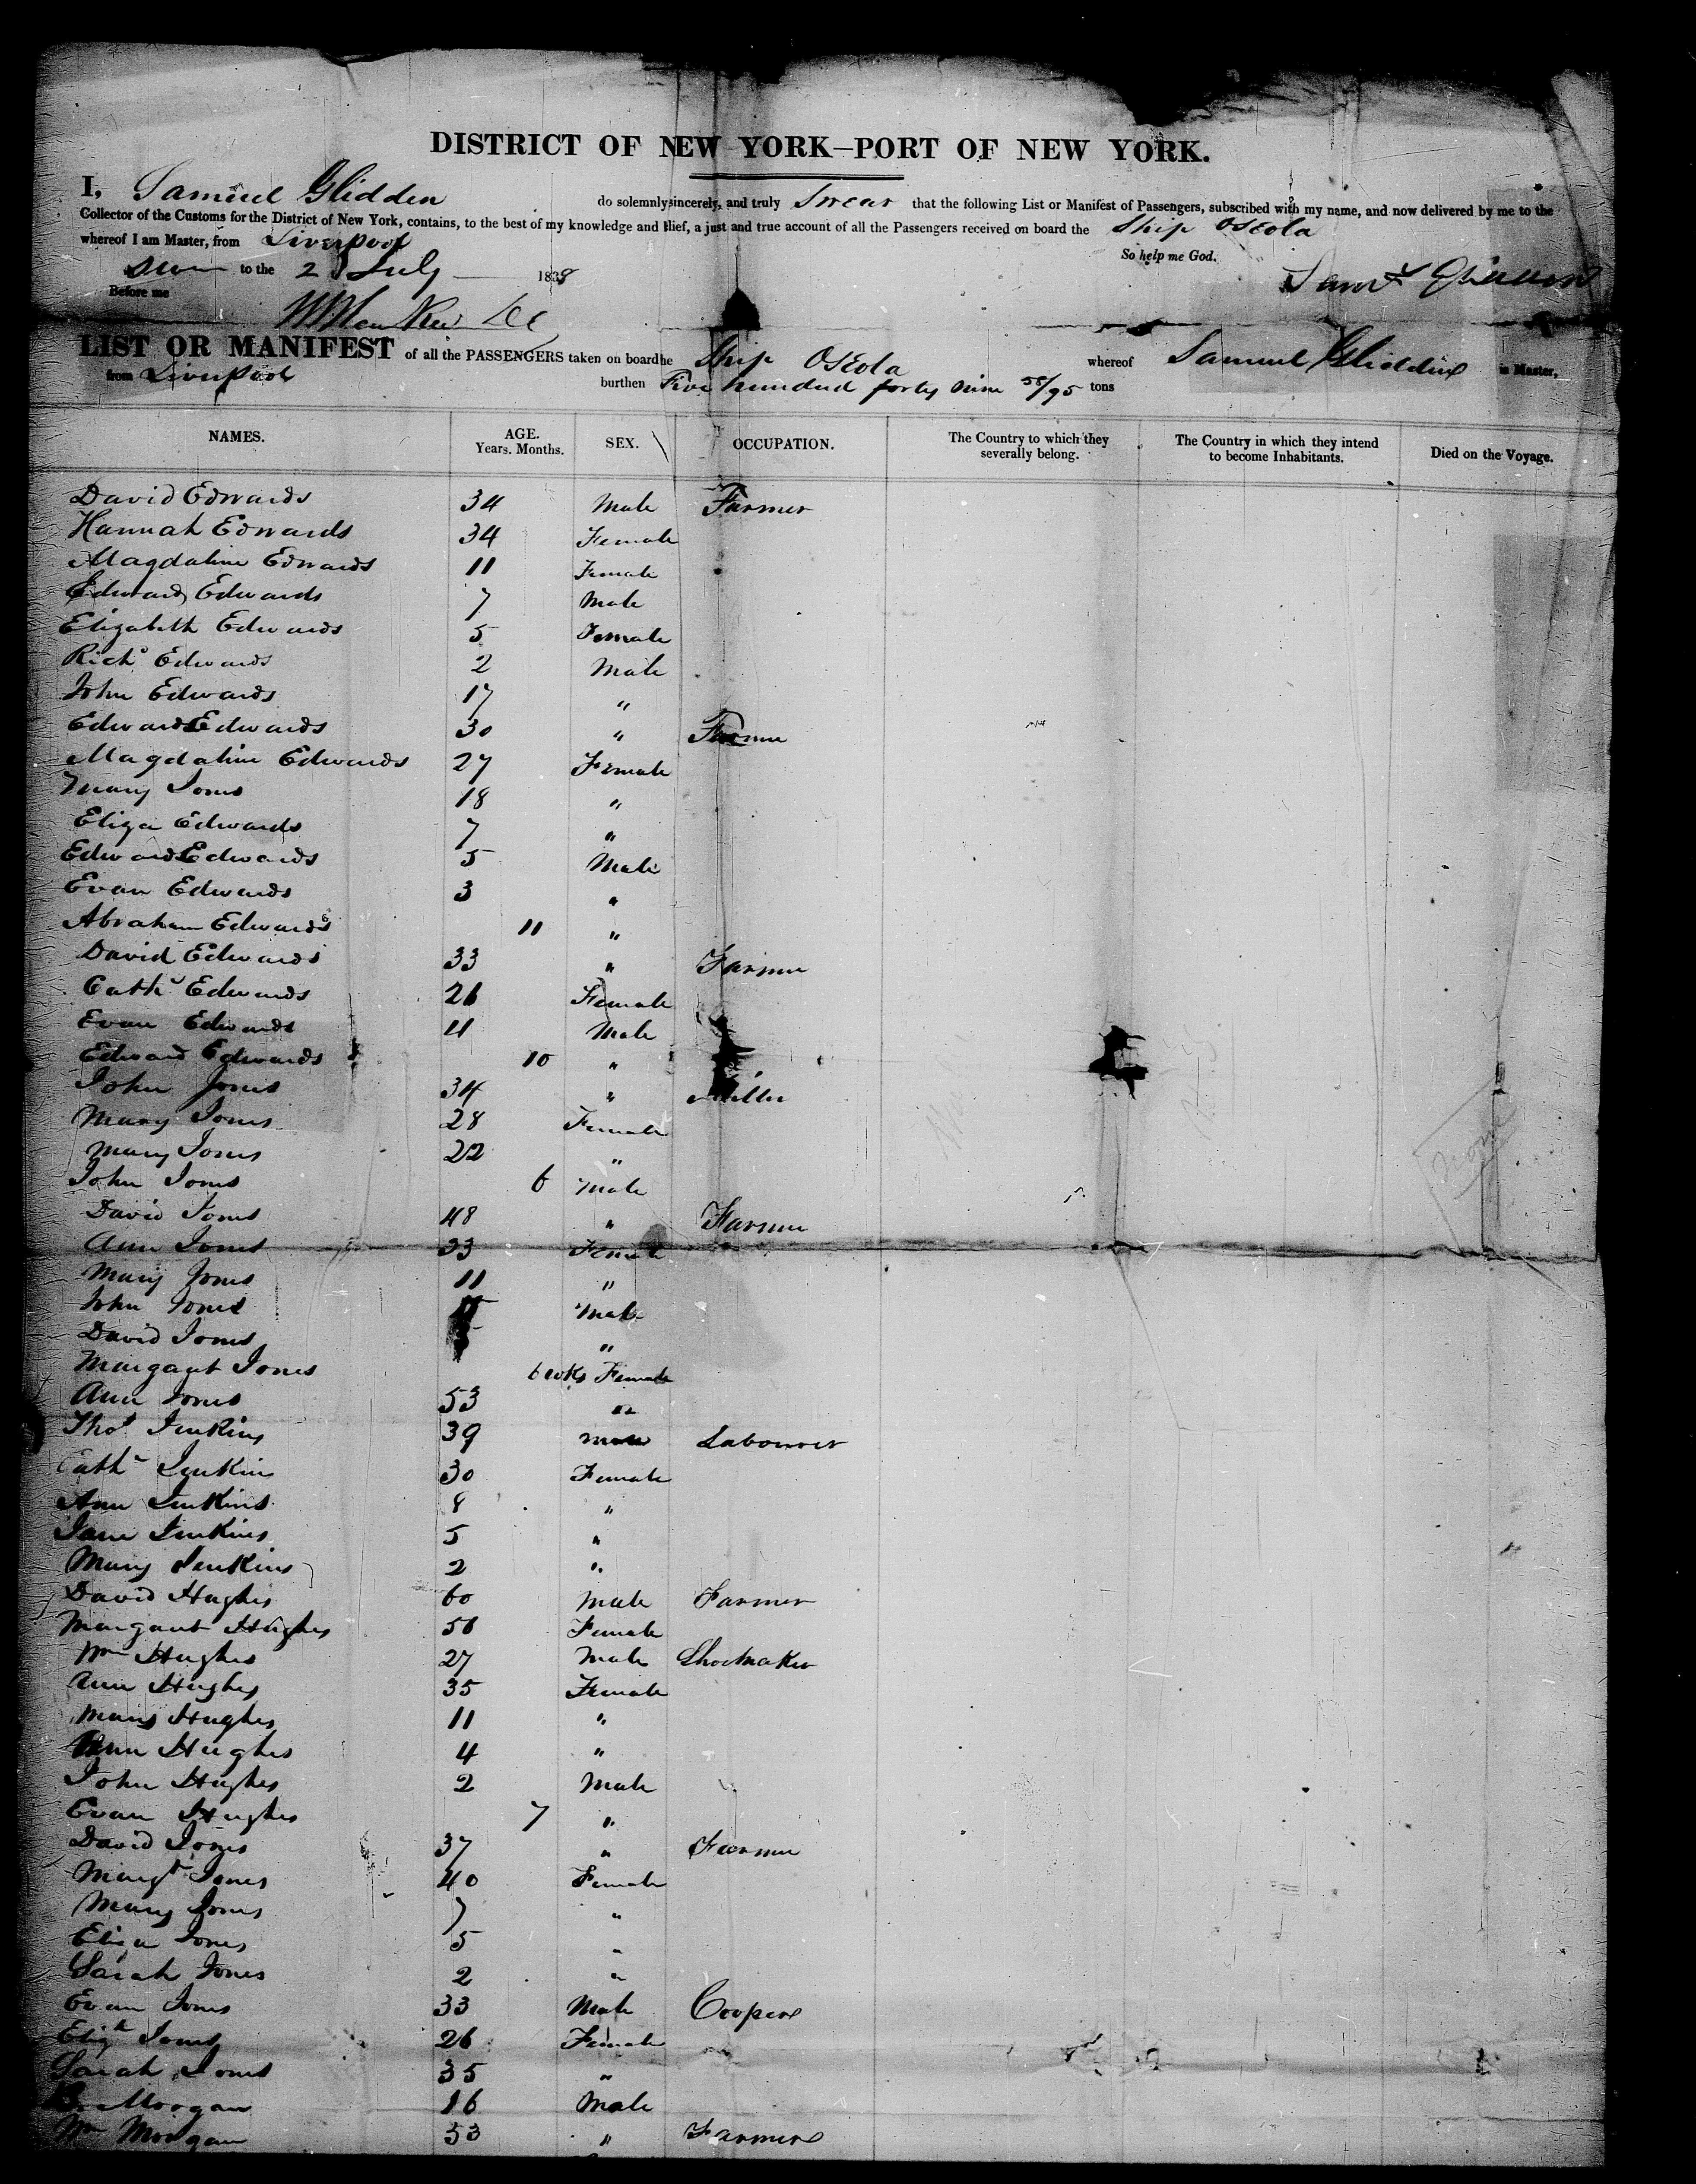 DISTRICT OF NEW YORK—PORT OF NEW YORK.
I, Samuel Glidden do solemnly, sincerely, and truly Swear that the following List or Manifest of Passengers, subscribed with my name, and now delivered by me to the
Collector of the Customs for the District of New York, contains, to the best of my knowledge and belief, a just and true account of all the Passengers received on board the Ship Oseola
whereof I am Master, from Liverpool
So help me God.
to the 2 July 1838
Before me
LIST OR MANIFEST of all the PASSENGERS taken on board the Ship Oseola whereof Samuel Glidden is Master,
from Liverpool burthen Five hundred forty nine 58/95 tons
NAMES. AGE. Years. Months. SEX. OCCUPATION. The Country to which they severally belong. The Country in which they intend to become Inhabitants. Died on the Voyage.
David Edwards 34 Male Farmer
Hannah Edwards 34 Female
Magdaline Edwards 11 Female
Edward Edwards 7 Male
Elizabeth Edwards 5 Female
Richd Edwards 2 Male
John Edwards 17 "
Edward Edwards 30 " Farmer
Magdaline Edwards 27 Female
Mary Jones 18 "
Eliza Edwards 7 "
Edward Edwards 5 Male
Evan Edwards 3 "
Abraham Edwards 11 "
David Edwards 33 " Farmer
Cathe Edwards 26 Female
Evan Edwards 4 Male
Edward Edwards 10 "
John Jones 34 " Miller
Mary Jones 28 Female
Mary Jones 22 "
John Jones 6 Male
David Jones 48 " Farmer
Ann Jones 33 Female
Mary Jones 11 "
John Jones Male
David Jones "
Margaret Jones 6 wks Female
Ann Jones 53 "
Thos Jenkins 39 Male Labourer
Cathe Jenkins 30 Female
Ann Jenkins 8 "
Jane Jenkins 5 "
Mary Jenkins 2 "
David Hughes 60 Male Farmer
Margaret Hughes 56 Female
Wm Hughes 27 Male Shoemaker
Ann Hughes 35 Female
Mary Hughes 11 "
Ann Hughes 4 "
John Hughes 2 Male
Evan Hughes 7 "
David Jones 37 " Farmer
Margt Jones 40 Female
Mary Jones 7 "
Eliza Jones 5 "
Sarah Jones 2 "
Evan Jones 33 Male Cooper
Elizth Jones 26 Female
Sarah Jones 35 "
Morgan 16 Male
Wm Morgan 53 " Farmer
none